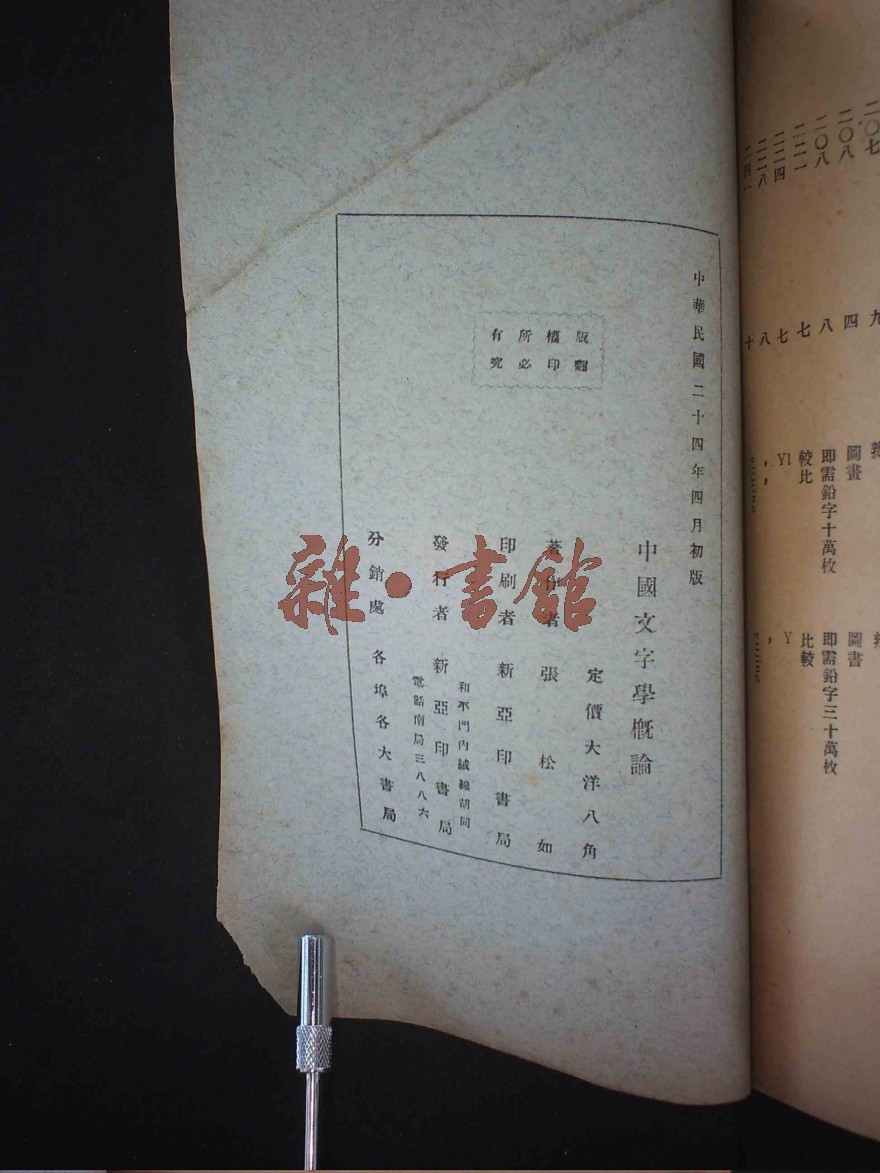 中華民國二十四年四月初版
中國文字學概論
定價大洋八角
版權所有
翻印必究
著作者 張松如
印刷者 新亞印書局
和平門內絨線胡同
發行者 新亞印書局
電話南局三八八六
分銷處 各埠各大書局
雜·書館
二〇七 九
二〇八 四 圖畫 圖書
二〇八 八 即需鉛字十萬枚 即需鉛字三十萬枚
二一一 七 較比 比較
二二四 七 Yl Y
二二八 八 , ,
二四一 十